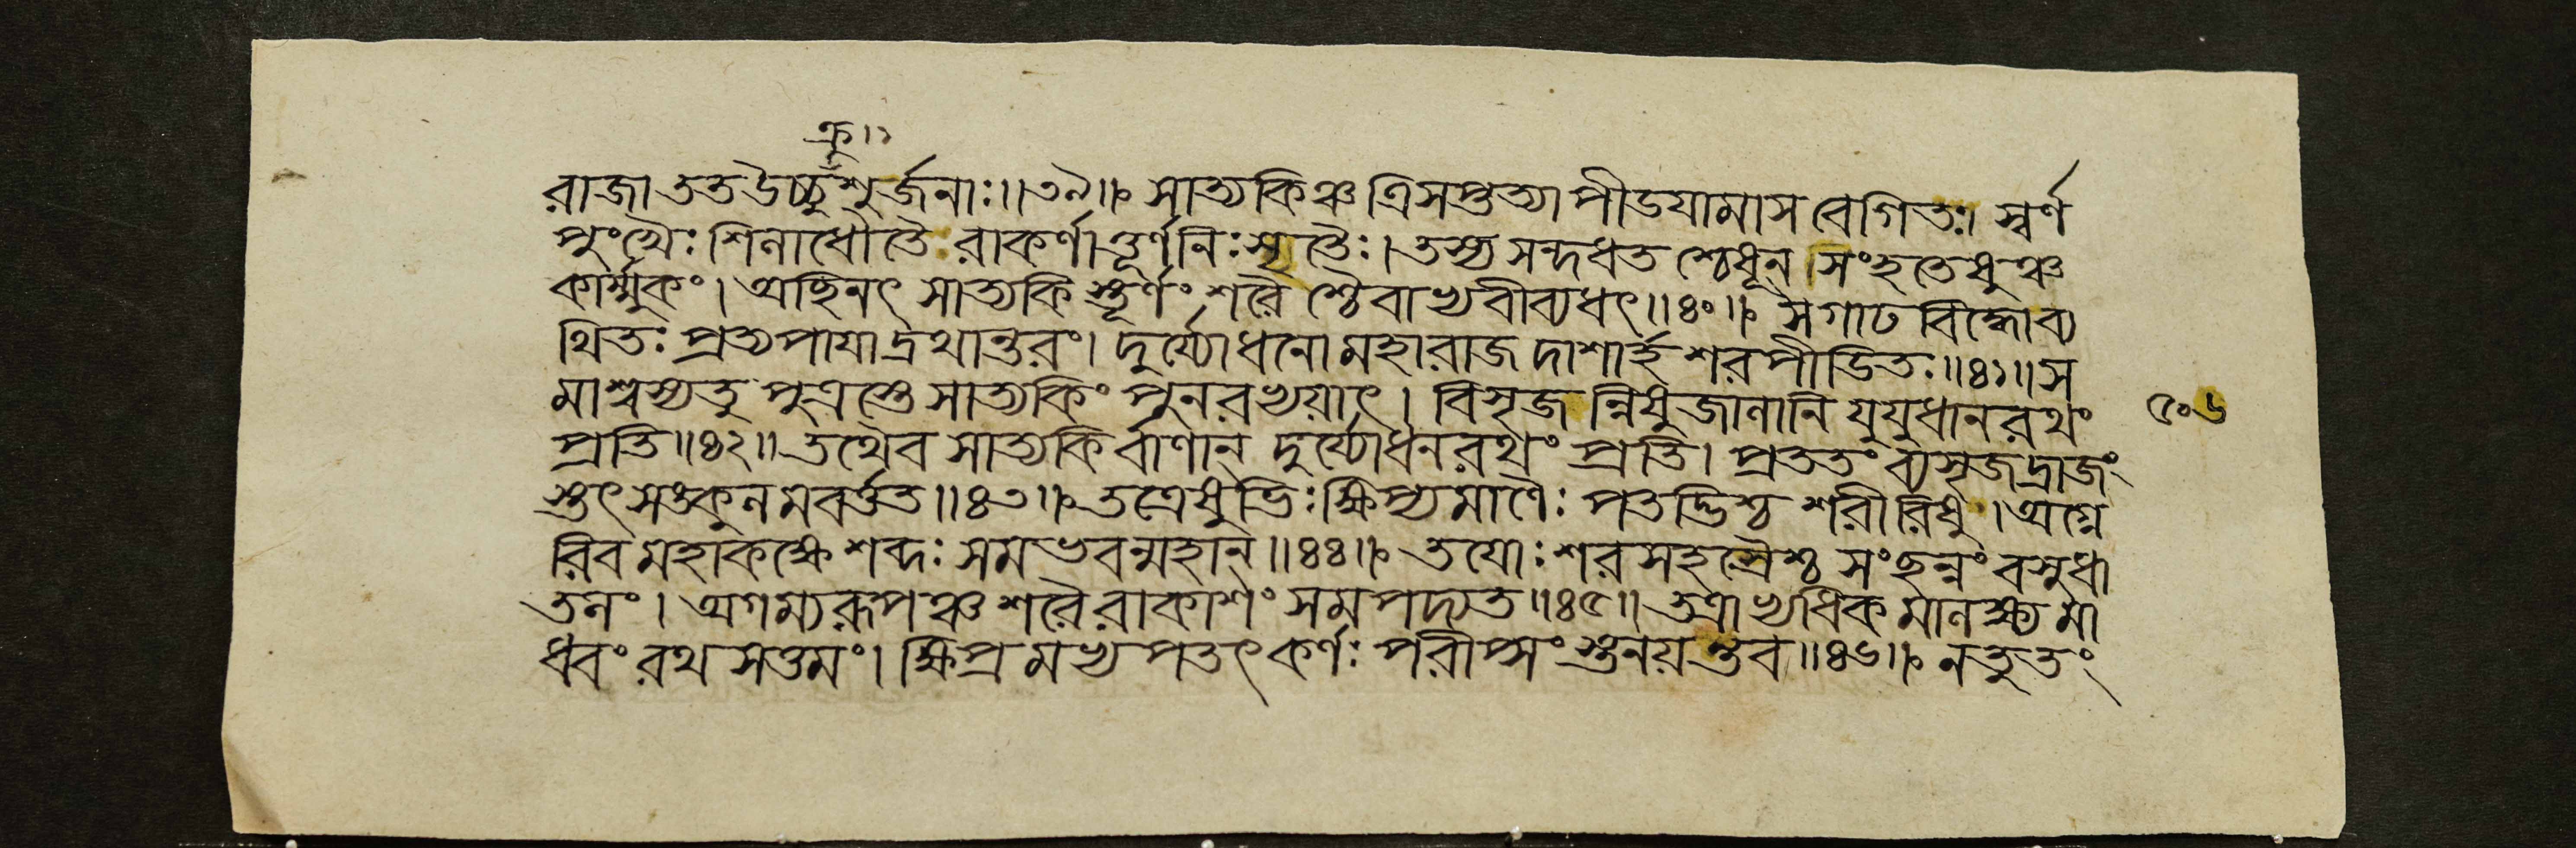 ক্রু।১
রাজা তত উচ্চুক্রুশুর্জনাঃ॥৩৯॥ সাত্যকিঞ্চ ত্রিসপ্তত্যা পীডযামাস বেগিতঃ। স্বর্ণ
পুংখৈঃ শিলাধৌতৈ রাকর্ণাপূর্ণনিঃসৃতৈঃ। তস্য সন্দধত শ্চেষূন্ সংহতেষুঞ্চ
কার্ম্মুকং। অছিনৎ সাত্যকি স্তূর্ণং শরৈ শ্চৈবাভ্যবীব্যধৎ॥৪০॥ স গাঢ বিদ্ধো ব্য
থিতঃ প্রত্যপাযাদ্রথান্তরং। দুর্য্যোধনো মহারাজ দাশার্হ শরপীডিতঃ॥৪১॥ স
মাশ্বস্য তু পুত্রস্তে সাত্যকিং পুনরভ্যয়াৎ। বিসৃজ ন্নিষুজালানি যুযুধানরথং
প্রতি॥৪২॥ তথৈব সাত্যকি র্বাণান্ দুর্য্যোধনরথং প্রতি। প্রততং ব্যসৃজদ্রাজং
স্তৎ সঙ্কুলমবর্ত্তত॥৪৩॥ তত্রেষুভিঃ ক্ষিপ্যমাণৈঃ পতদ্ভিশ্চ শরীরিষু। অগ্নে
রিব মহাকক্ষে শব্দঃ সমভবন্মহান্॥৪৪॥ তযোঃ শরসহস্রৈশ্চ সংছন্নং বসুধা
তলং। অগম্যরূপঞ্চ শরৈরাকাশং সমপদ্যত॥৪৫॥ তত্রাভ্যধিকমালক্ষ্য মা
ধবং রথসত্তমং। ক্ষিপ্রমভ্যপতৎ কর্ণঃ পরীপ্সংস্তনয়ন্তব॥৪৬॥ ন তু তং
৫০৬